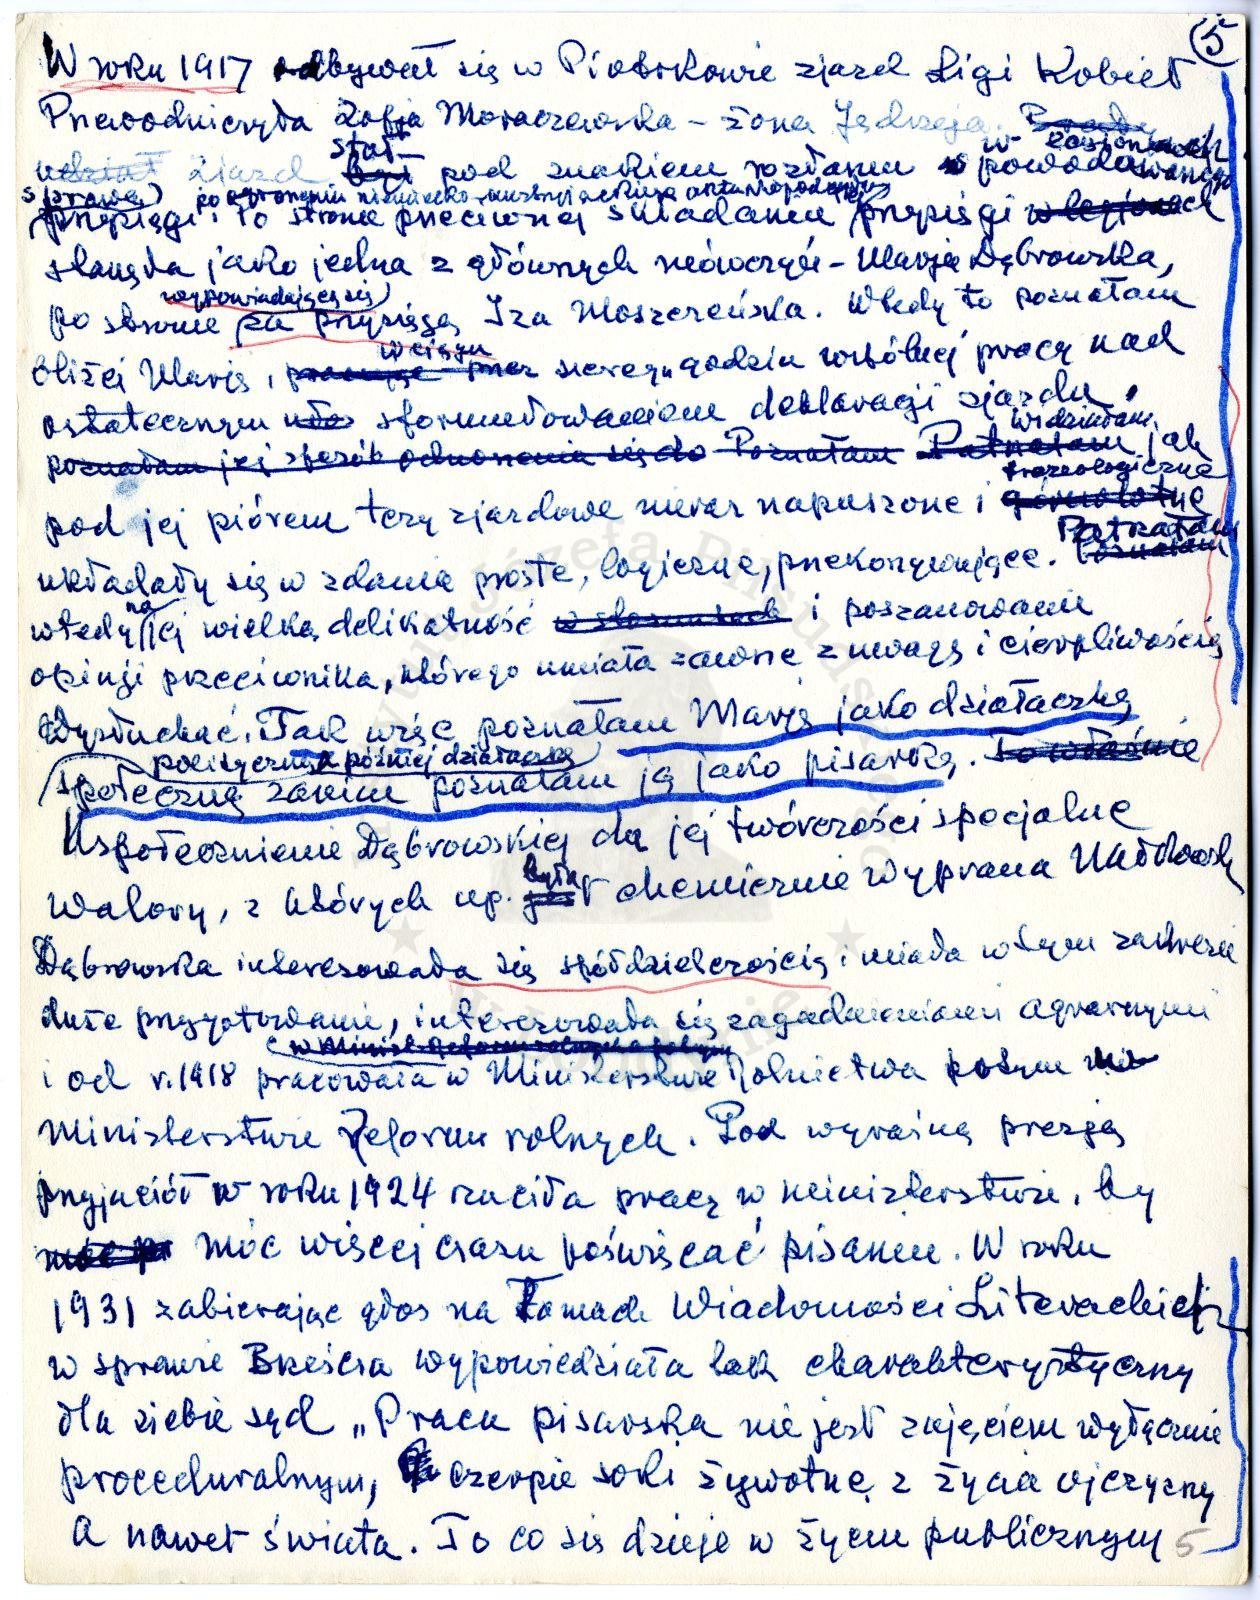 5
W roku 1917 odbywał się w Piotrkowie zjazd Ligi Kobiet
Przewodniczyła Zofja Moraczewska – żona Jędrzeja.
udział zjazd stał był pod znakiem rozłamu w powodowanego
w legjonach
sprawą przysięgi. Po stronie przeciwnej składaniu przysięgi w legjonach
po ogłoszeniu niemiecko-austryjackiego aktu listopadowego
stanęła jako jedna z głównych mówczyń – Marja Dąbrowska,
wypowiadającej się
po stronie za przysięgą Iza Moszczeńska. Wtedy to poznałam
w ciągu
bliżej Marję, pracując przez szeregu godzin wspólnej pracy nad
ostatecznym sformułowaniem deklaracji zjazdu.
widziałam
poznałam jej sposób odnoszenia się do Poznałam Patrzałam jak
frazeologiczne
pod jej piórem tezy zjazdowe nieraz napuszone i górnolotne
Patrzałam
układały się w zdania proste, logiczne, przekonywujące. Poznałam
na
wtedy jej wielką delikatność w stosunkach i poszanowanie
opinji przeciwnika, którego umiała zawsze z uwagą i cierpliwością
wysłuchać. Tak więc poznałam Marję jako działaczkę
polityczną, a później działaczkę
społeczną zanim poznałam ją jako pisarkę. To właśnie
Uspołecznienie Dąbrowskiej da jej twórczości specjalne
była
walory, z których np. jest chemicznie wyprana Nałkowska
Dąbrowska interesowała się spółdzielczością i miała w tym zakresie
duże przygotowanie, interesowała się zagadnieniami agrarnymi
w Minist. Reform rolnych a potym
i od r. 1918 pracowała w Ministerstwie Rolnictwa potym
Ministerstwie Reform rolnych. Pod wyraźną presją
przyjaciół w roku 1924 rzuciła pracę w ministerstwie, by
móc móc więcej czasu poświęcać pisaniu. W roku
1931 zabierając głos na łamach Wiadomości Literackich
w sprawie Brześcia wypowiedziała tak charakterystyczny
dla siebie sąd „Praca pisarska nie jest zajęciem wyłącznie
proceduralnym, czerpie soki żywotne z życia ojczyzny
a nawet świata. To co się dzieje w życiu publicznym
5